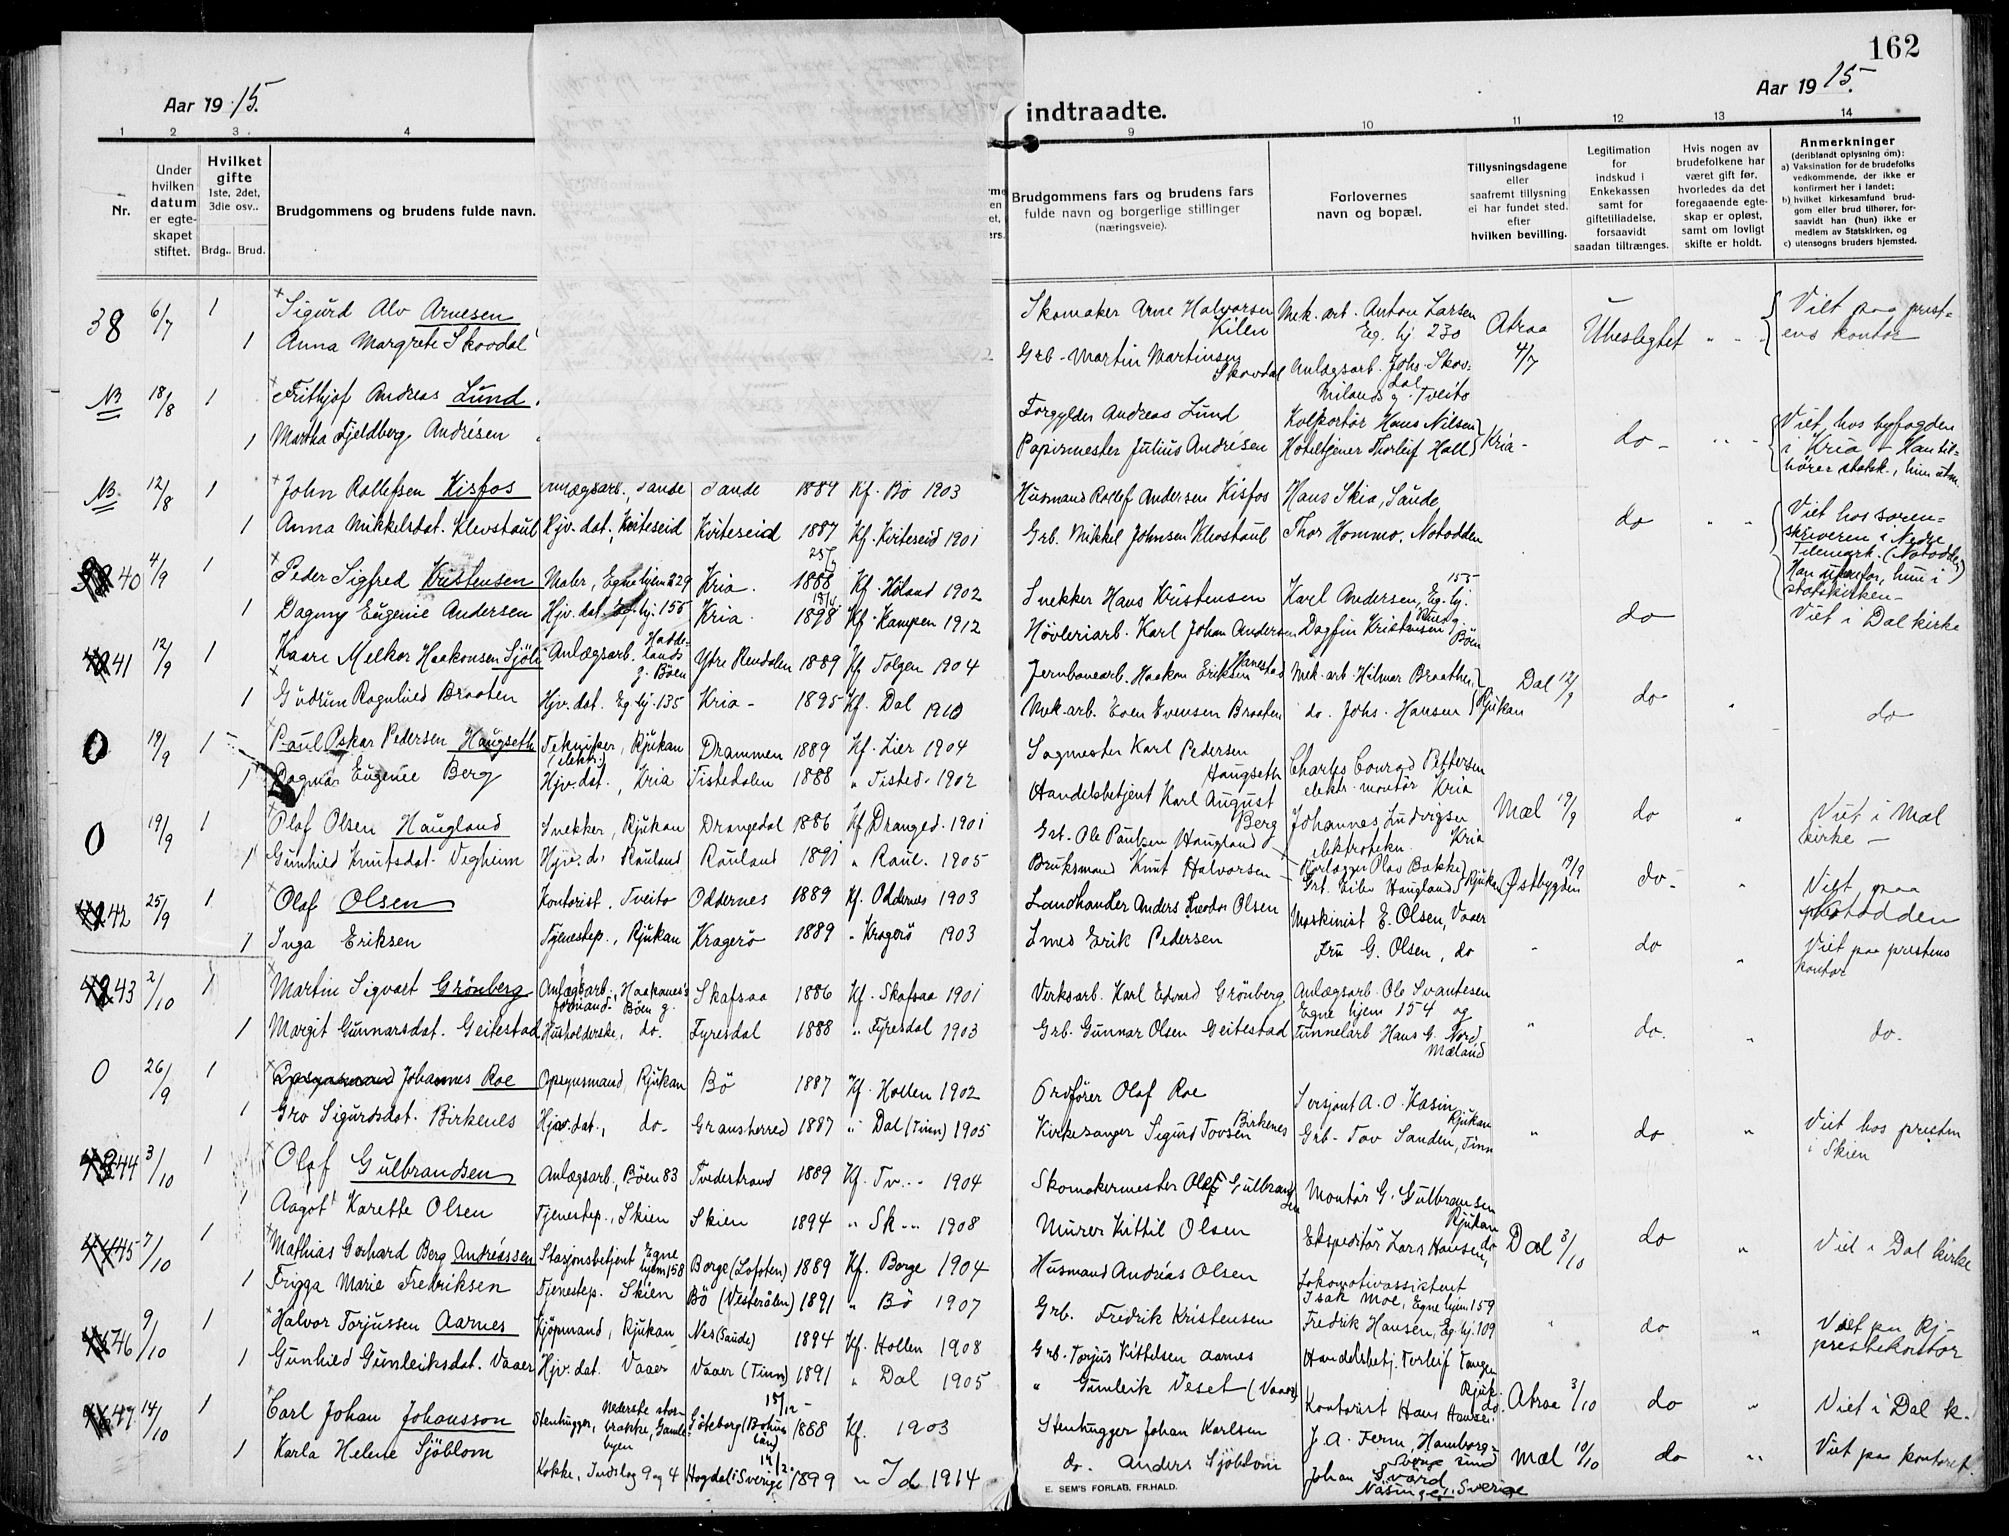 162
Aar 19 15.
Aar 19 15.
indtraadte.
1 2 3 4 9 10 11 12 13 14
Nr.
Under hvilken datum er egteskapet stiftet.
Hvilket gifte
1ste, 2det, 3die osv..
Brdg.. Brud.
Brudgommens og brudens fulde navn.
Brudgommens fars og brudens fars
fulde navn og borgerlige stillinger
(næringsveie).
Forlovernes
navn og bopæl.
Tillysningsdagene
eller
saafremt tillysning
ei har fundet sted.
efter
hvilken bevilling.
Legitimation
for
indskud i
Enkekassen
samt for
giftetilladelse,
forsaavidt
saadan tiltrænges.
Hvis nogen av
brudefolkene har
været gift før,
hvorledes da det
foregaaende egte-
skap er opløst,
samt om lovligt
skifte er holdt.
Anmerkninger
(deriblandt oplysning om):
a) Vaksination for de brudefolks
vedkommende, der ikke er
konfirmert her i landet;
b) hvilket kirkesamfund brud-
gom eller brud tilhører, for-
saavidt han (hun) ikke er
medlem av Statskirken, og
c) utensogns bruders hjemsted.
38 6/7 1 Sigurd Alv Arnesen Skomaker Arne Halvorsen Kilen Mek. arb. Anton Larsen Eg. hj 230 Atraa 4/7 Ubeslegtet Viet paa prest=
ens kontor
1 Anna Margrete Skovdal Grb. Martin Martinsen Skovdal Anlægsarb. Johs. Skovdal
NB 18/8 1 Frithjof Andreas Lund Forgylder Andreas Lund Kolportør Hans Nilsen Kria - do - Viet hos byfogden
i Kria - Han til=
hører statsk., hun utm.
1 Martha Fjeldberg Andrésen Papirmester Julius Andrésen Hoteltjener Thorleif Hall
NB 12/8 1 John Rollefsen Kisfos Anlægsarb., Sande Sande 1884 Kf. Bø 1903 Husmand Rollef Andersen Kisfos Hans Skia, Saude do Viet hos soren=
skriveren i Nedre
Telemark. (Notodden)
Han utenfor, hun i
statskirken -
1 Anna Mikkelsdat. Klevstaul Hjv. dat., Kviteseid Kviteseid 1887 Kf. Kviteseid 1901 Grb. Mikkel Johnsen Klevstaul Thor Hommo, Notodden
40 4/9 1 Peder Sigfred Kristensen Maler, Egne hjem 229 Kria. 1888 Kf. Höland 1902 Snekker Hans Kristensen Karl Andersen, Eg. hj. 155 do Viet i Dal kirke
1 Dagny Eugenie Andersen Hjv. dat. Eg. hj. 155 Kria. 1898 Kf. Kampen 1912 Hövleriarb. Karl Johan Andersen Dagfin Kristensen Böen
41 12/9 1 Kaare Melkor Haakonsen Sjöli Anlægsarb. Haddelands g. Böen Ytre Rendalen 1889 Kf Tolgen 1904 Jernbanearb. Haakon Eriksen Hanestad Mek. arb. Hilmar Braathen, Rjukan Dal 12/9 do do
1 Gudrun Ragnhild Braaten Hjv. dat. Eg. hj. 135 Kria - 1895 Kf. Dal 1910 Mek. arb. Even Evensen Braaten do. Johs. Hansen
0 19/9 1 Paul Oskar Pedersen Haugseth Tekniker (elektr.), Rjukan Drammen 1889 Kf. Lier 1904 Sagmester Karl Pedersen Haugseth Charles Conrad Pettersen elektr. montör Kria Mæl 19/9 do Viet i Mæl
kirke -
1 Dagmar Eugenie Berg Hjv. dat., Kria Tistedalen 1888 " Tisted. 1902 Handelsbetjent Karl August Berg Johannes Ludvigsen elektrotekn. Kria
0 19/9 1 Olaf Olsen Haugland Snekker, Rjukan Drangedal 1886 Kf Dranged. 1901 Grb. Ole Paulsen Haugland Olav Bakke Rjukan Østbygden 19/9 do - Viet paa
Notodden
1 Gunhild Knutsdat. Vegheim Hjv. d. Rauland Rauland 1891 " Raul. 1905 Bruksmand Knut Halvorsen Grb. Eilev Haugland
42 25/9 1 Olaf Olsen Kontorist, Tveito Oddernes 1889 Kf. Oddernes 1903 Landhandler Anders Theodor Olsen Maskinist E. Olsen, Vaaer do Viet paa prestens
kontor
1 Inga Eriksen Tjenestep., Rjukan Kragerö 1889 " Kragerö 1903 Smed Erik Pedersen Fru G. Olsen, do
43 2/10 1 Martin Sigvart Grönberg Anlægsarb. formand Haakanes's Böen g. Skafsaa 1886 Kf. Skafsaa 1901 Verksarb. Karl Edvard Grönberg Anlægsarb. Ole Svantesen Egne hjem 154 og " do. " do.
1 Margit Gunnarsdat. Geitestad Husholderske, do. Fyresdal 1888 " Fyresdal 1903 Grb. Gunnar Olsen Geitestad Tunnelarb Hans G. Nord Mæland
0 26/9 1 Johannes Roe Opsynsmand, Rjukan Bö 1887 Kf. Hollen 1902 Ordförer Olaf Roe Sersjant A. O. Kasin, Rjukan " do " Viet hos presten
i Skien
1 Gro Sigurdsdat. Birkenes Hjv. dat., do - Gransherred 1887 " Dal (Tinn) 1905 Kirkesanger Sigurd Tovsen Birkenes Grb. Tov Sanden, Tinn
44 3/10 1 Olaf Gulbrandsen Anlægsarb., Böen 83 Tvedestrand 1889 Kf. Tv... 1904 Skomakermester Olaf Gulbrandsen Montör G. Gulbransen Rjukan Dal 3/10 do " Viet i Dal kirke
1 Aagot Karette Olsen Tjenestep., Skien Skien 1894 " Sk... 1908 Murer Kittil Olsen Ekspeditör Lars Hansen, do
45 7/10 1 Mathias Gerhard Berg Andréassen Stasjonsbetjent Egne hjem 158 Borge (Lofoten) 1889 Kf. Borge 1904 Husmand Andréas Olsen Lokomotivassistent Isak Moe, Egne hjem 159 " do " Viet paa Rj.
prestekontor
1 Frigga Marie Fredriksen Tjenestep. Skien Bö (Vesterålen) 1891 " Bö 1907 Grb. Fredrik Kristensen Fredrik Hansen, Eg. hj. 109
46 9/10 1 Halvor Torjussen Aarnes Kjöpmand, Rjukan Nes (Saude) 1894 Kf. Hollen 1908 Grb. Torjus Kittelsen Aarnes Handelsbetj. Torleif Tangen Rjuk. Atraa 3/10 do " Viet i Dal k.
1 Gunhild Gunleiksdat. Vaaer Hjv. dat. Vaaer Vaaer (Tinn) 1891 " Dal 1905 " Gunleik Veset (Vaaer) Kontorist Hans Hansen do.
47 14/10 1 Carl Johan Johansson Stenhugger, Nederste stor- brakke, Gamle- byen Göteborg (Bohus län) 15/12 - 1888 Kf. 1903 Stenhugger Johan Karlsen J. A. Ferm, Hamborg- sund Sverige Mæl 10/10 do " Viet paa kontoret.
1 Karla Helene Sjöblom Kokke, Indslag 9 og 4 Hogdal i Sverige 1899 " Id 1914 do. Anders Sjöblom Johan Svärd Näsinge i Sverige
E. SEM'S FORLAG, FR.HALD.